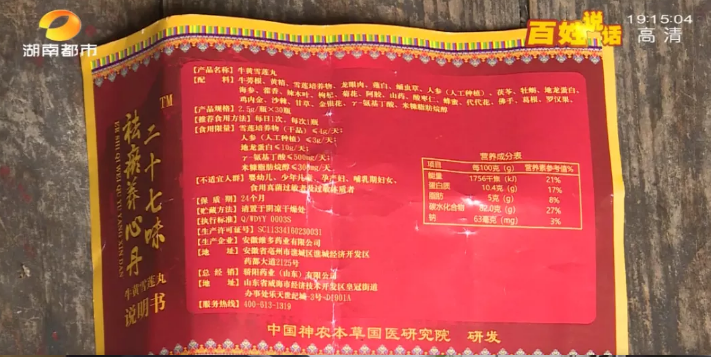 湖南都市
百姓说话
19:15:04
高清
TM
二十七味
祛瘀养心丹
牛黄雪莲丸
说明书
【产品名称】牛黄雪莲丸
【配 料】牛蒡根、黄精、雪莲培养物、龙眼肉、薤白、蛹虫草、人参（人工种植）、茯苓、牡蛎、地龙蛋白、
海参、藿香、辣木叶、枸杞、菊花、阿胶、山药、酸枣仁、蜂蜜、代代花、佛手、葛根、罗汉果、
鸡内金、沙棘、甘草、金银花、γ-氨基丁酸、米糠脂肪烷醇
【产品规格】2.5g/瓶×30瓶
【推荐食用方法】每日1次，每次1瓶
【食用限量】雪莲培养物（干品）≤4g/天；
人参（人工种植）≤3g/天；
地龙蛋白≤10g/天；
γ-氨基丁酸≤500mg/天；
米糠脂肪烷醇≤300mg/天
【不适宜人群】婴幼儿、少年儿童、孕产妇、哺乳期妇女、
食用真菌过敏者及过敏体质者
【保 质 期】24个月
【贮藏方法】请置于阴凉干燥处
【执行标准】Q/WDYY 0003S
【生产许可证号】SC11334160230031
【生产企业】安徽维多药业有限公司
【地 址】安徽省亳州市谯城区谯城经济开发区
药都大道2125号
【总 经 销】骄阳药业（山东）有限公司
【地 址】山东省威海市经济技术开发区皇冠街道
办事处乐天世纪城-3号-D1001A
【服务热线】400-613-1319
营养成分表
项目 每100克（g） 营养素参考值%
能量 1756千焦（kJ） 21%
蛋白质 10.4克（g） 17%
脂肪 5克（g） 8%
碳水化合物 82.0克（g） 27%
钠 63毫克（mg） 3%
中国神农本草国医研究院 研发